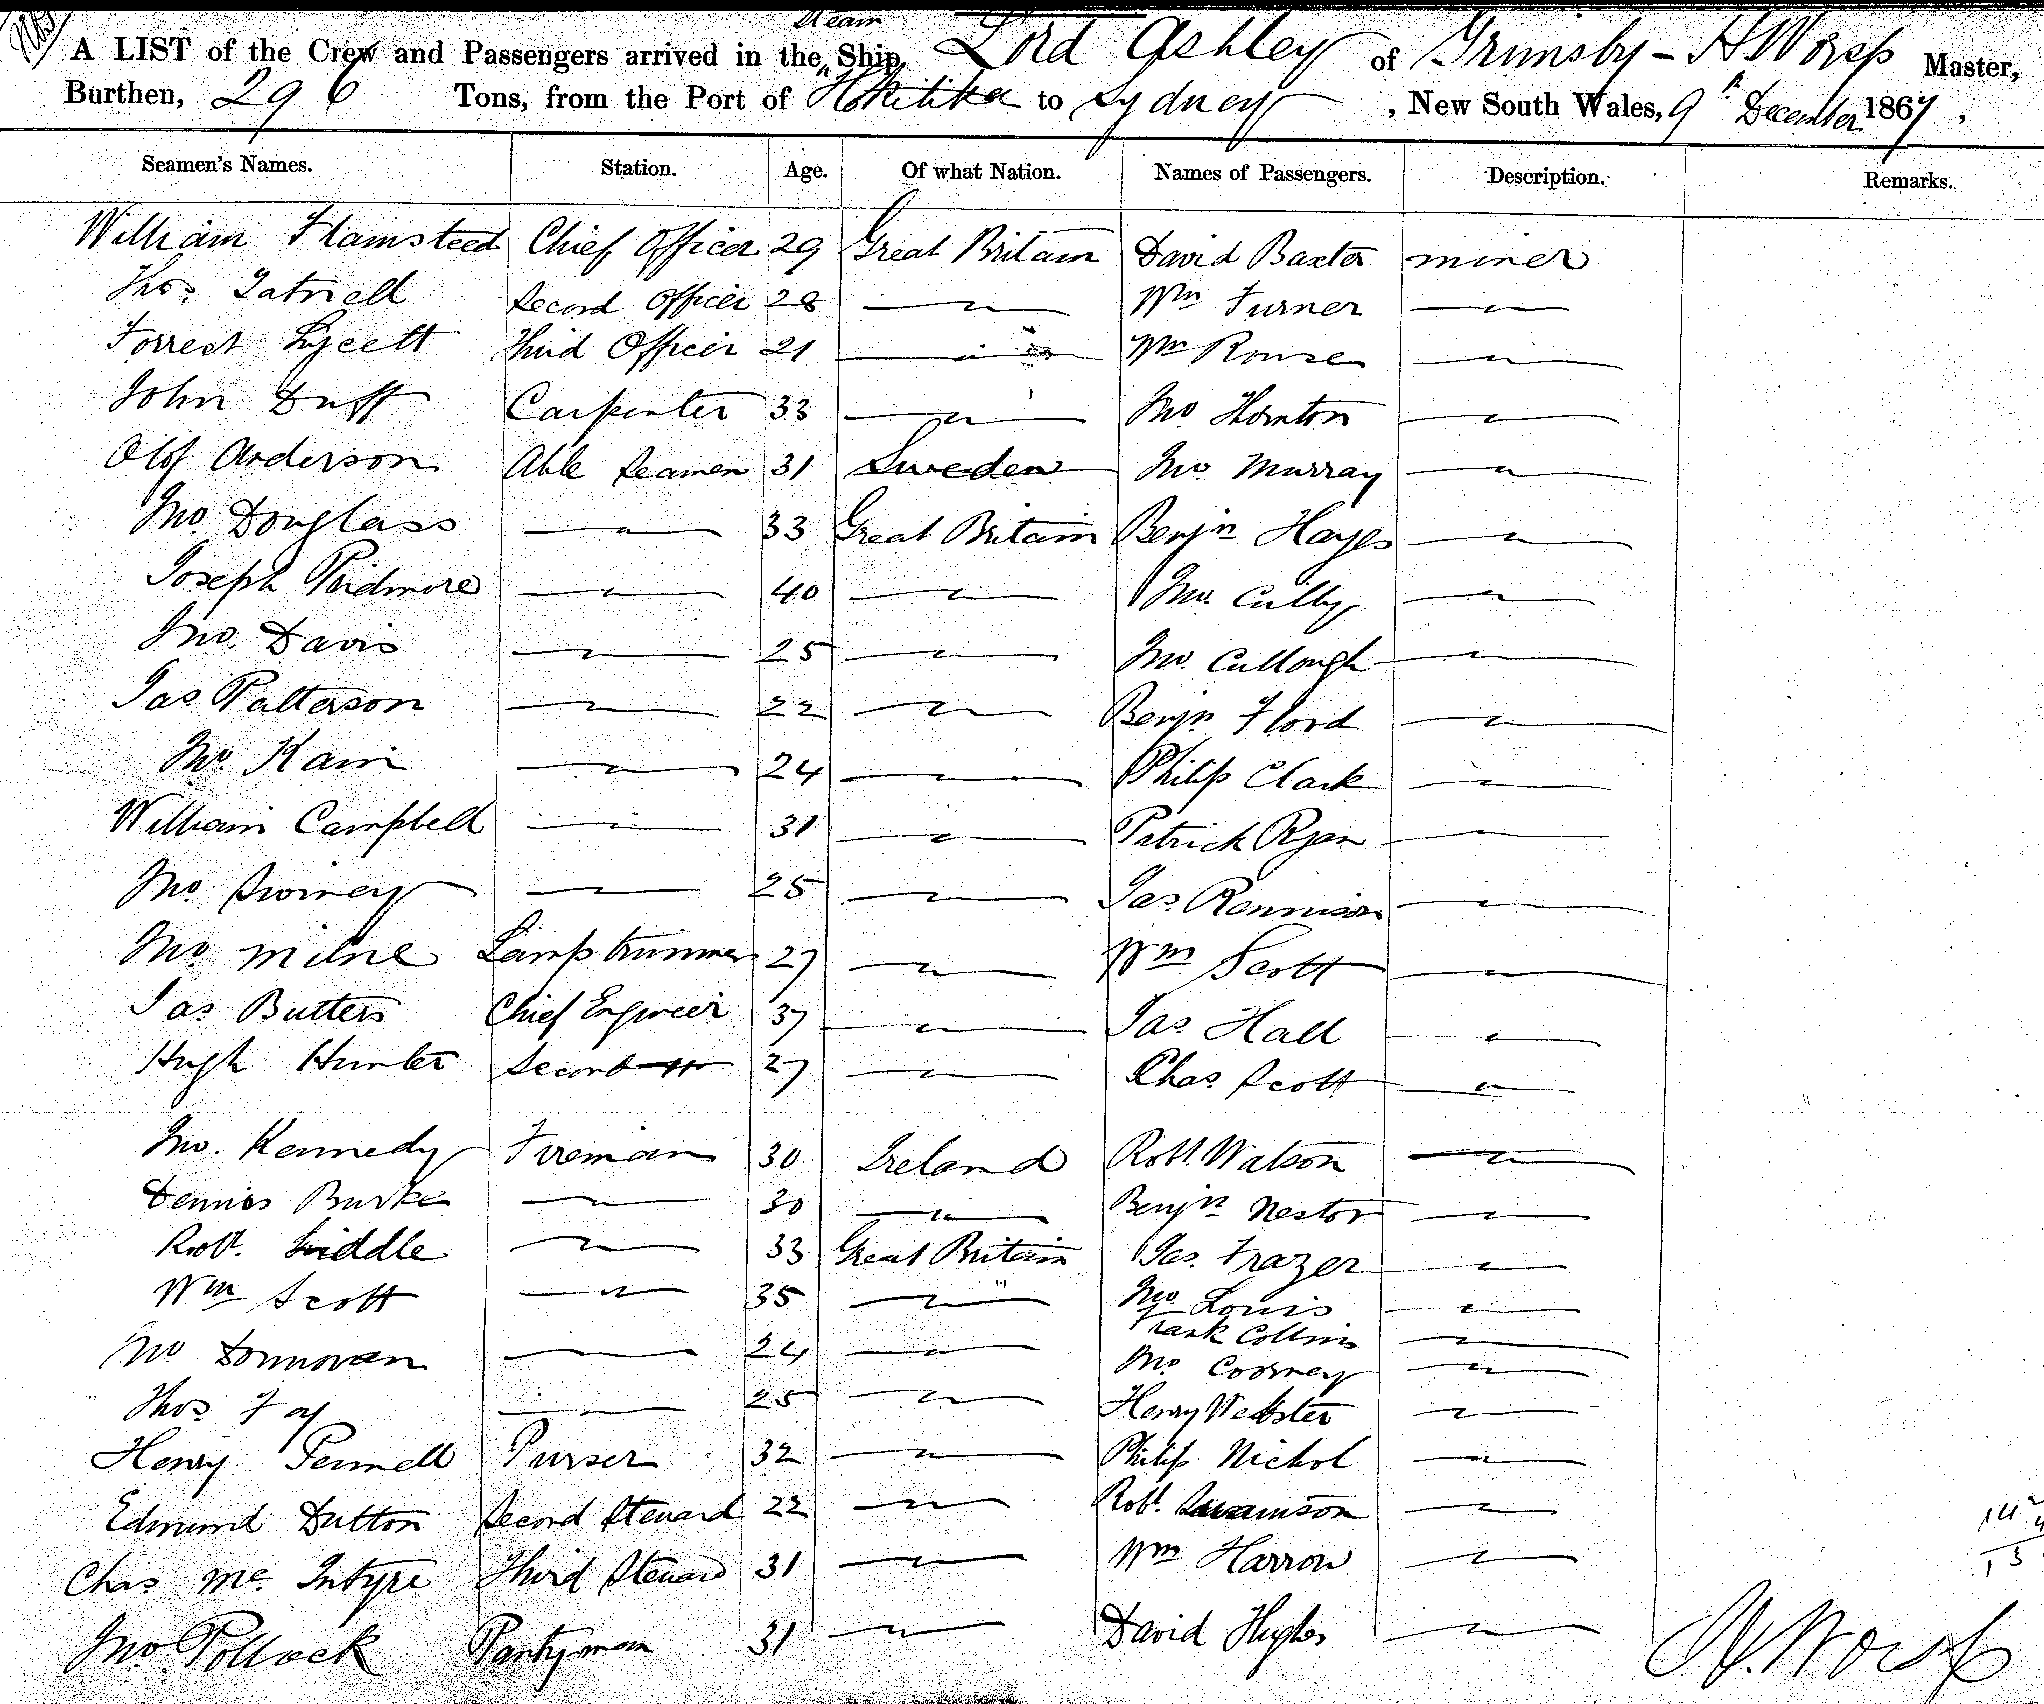 Steam
A LIST of the Crew and Passengers arrived in the Ship, Lord Ashley of Grimsby - H Worsp Master,
Burthen, 296 Tons, from the Port of Hokitika to Sydney, New South Wales, 9th December 1867.
Seamen's Names. Station. Age. Of what Nation. Names of Passengers. Description. Remarks.
William Flamsteed Chief Officer 29 Great Britain David Baxter miner
Thos. Tatnell Second Officer 28 — " — Wm Turner — " —
Forrest Lycett Third Officer 21 — " — Wm Rouse — " —
John Duff Carpenter 33 — " — Jno Thornton — " —
Olof Anderson Able Seamen 31 Sweden Jno Murray — " —
Jno Douglass — " — 33 Great Britain Benjn Hayes — " —
Joseph Pridmore — " — 40 — " — Jno. Cully — " —
Jno. Davis — " — 25 — " — Jno. Cullough — " —
Jas Patterson — " — 22 — " — Benjn Flord — " —
Jno Kain — " — 24 — " — Philip Clark — " —
William Campbell — " — 31 — " — Patrick Ryan — " —
Jno — " — 25 — " — Jas. Rennison — " —
Jno Milne Lamp trimmer 27 — " — Wm Scott — " —
Jas Butters Chief Engineer 37 — " — Jas Hall — " —
Hugh Hunter Second — " — 27 — " — Chas Scott — " —
Jno. Kennedy Fireman 30 Ireland Robt. Watson — " —
Dennis Burke — " — 30 — " — Benjn Nestor — " —
Robt. Liddle — " — 33 Great Britain Jas. Frazer — " —
Wm Scott — " — 35 — " — Jno Louis — " —
Frank Collins — " —
Jno Donnovan — " — 24 — " — Jno Coorney — " —
Thos Foy — " — 25 — " — Henry Webster — " —
Henry Pennell Purser 32 — " — Philip Nichol — " —
Edmund Dutton Second Steward 22 — " — Robt. Swainson — " —
Chas McIntyre Third Steward 31 — " — Wm Harrow — " —
Jno Pollock Pantryman 31 — " — David Hughes — " —
H. Worsp